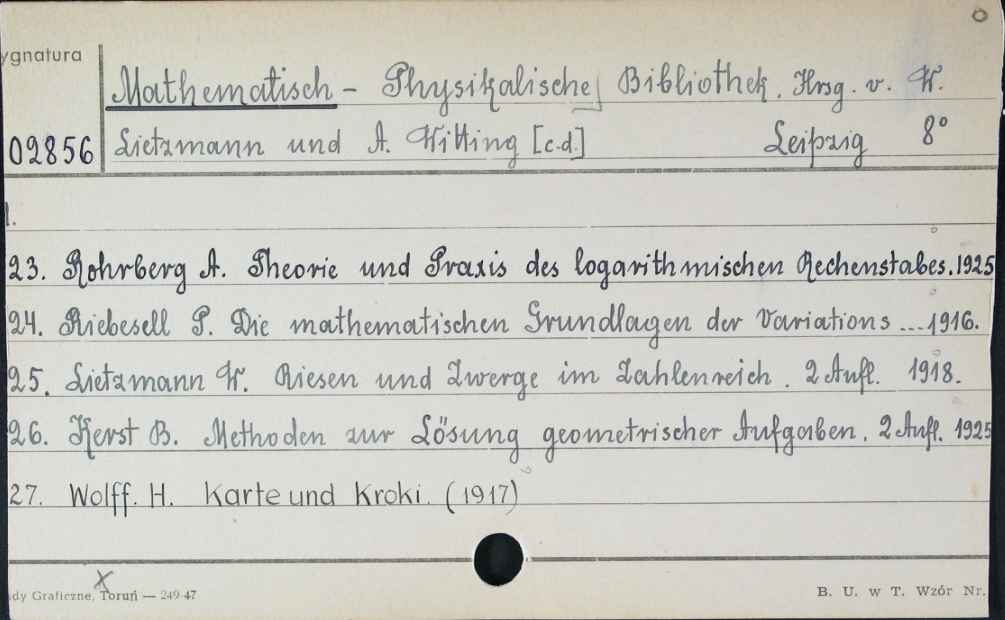 ygnatura
Mathematisch - Physikalische Bibliothek. Hrsg. v. W.
02856 Lietzmann und A. Witting [c.d.] Leipzig 8°
1.
23. Rohrberg A. Theorie und Praxis des logarithmischen Rechenstabes. 1925
24. Riebesell P. Die mathematischen Grundlagen der Variations ... 1916.
25. Lietzmann W. Riesen und Zwerge im Zahlenreich. 2 Aufl. 1918.
26. Kerst B. Methoden zur Lösung geometrischer Aufgaben. 2 Aufl. 1925
27. Wolff. H. Karte und Kroki. (1917)
x
dy Graficzne, Toruń — 249-47 B. U. w T. Wzór Nr.